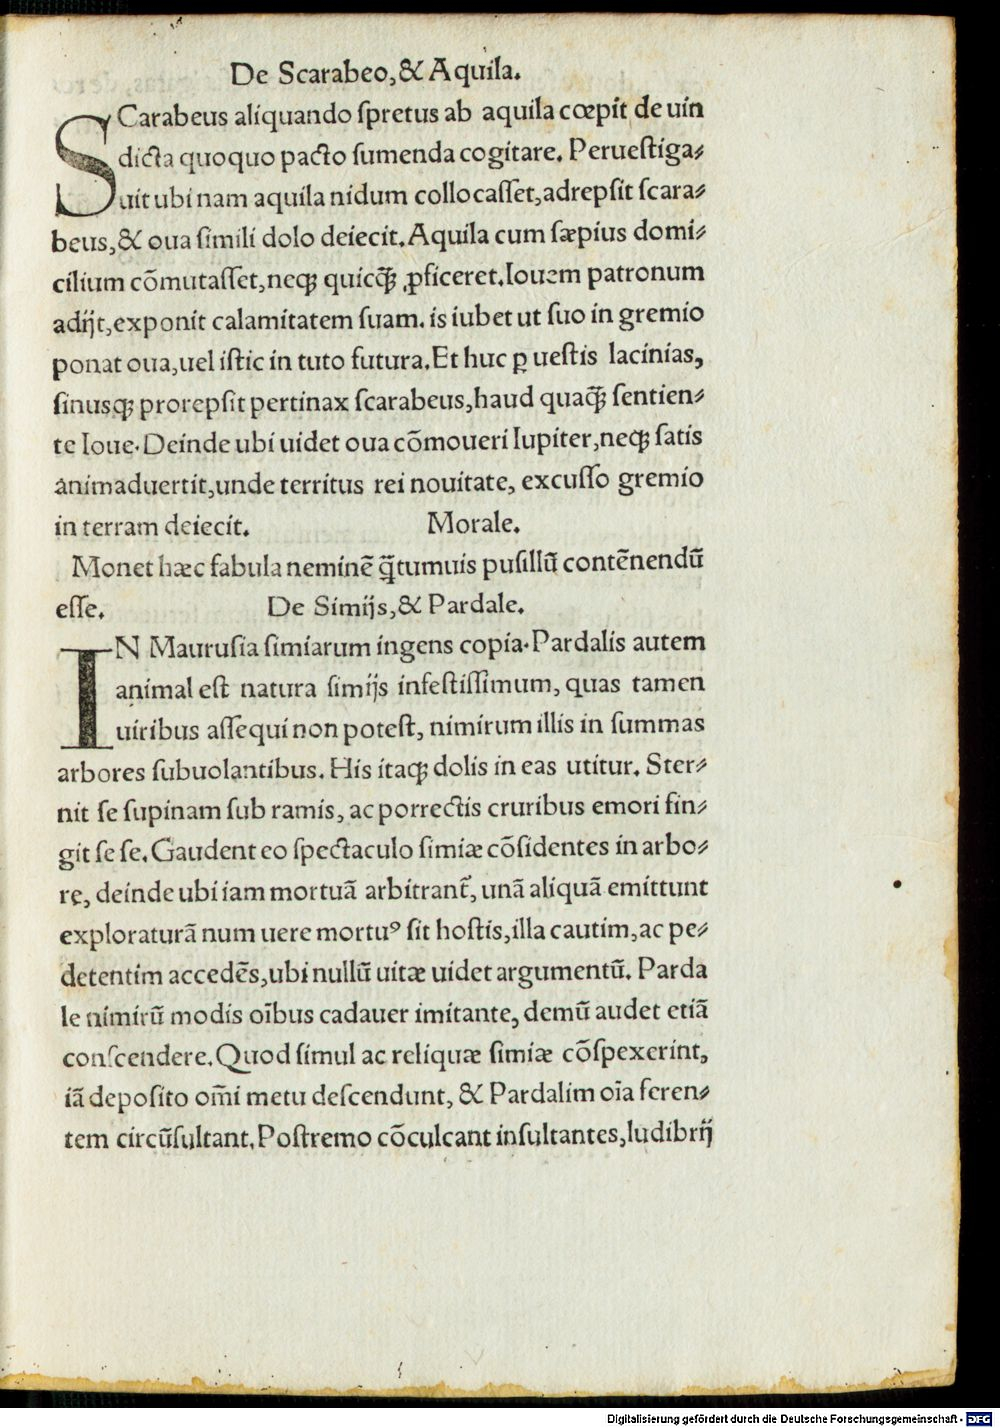 De Scarabeo,& Aquila.
SCarabeus aliquando ſpretus ab aquila cœpit de uin
dicta quoquo pacto ſumenda cogitare. Perueſtiga⸗
uit ubi nam aquila nidum collocaſſet,adrepſit ſcara⸗
beus,& oua ſimili dolo deiecit.Aquila cum ſæpius domi⸗
cilium cõmutaſſet,neqꝫ quicqꝫ̃ ꝓficeret.Iouem patronum
adijt,exponit calamitatem ſuam. is iubet ut ſuo in gremio
ponat oua,uel iſtic in tuto futura.Et huc ꝑ ueſtis lacinias,
ſinusqꝫ prorepſit pertinax ſcarabeus,haud quaqꝫ̃ ſentien⸗
te Ioue.Deinde ubi uidet oua cõmoueri Iupiter,neqꝫ ſatis
animaduertit,unde territus rei nouitate, excuſſo gremio
in terram deiecit. Morale.
Monet hæc fabula neminẽ q̃tumuis puſillũ contẽnendũ
eſſe. De Simijs,& Pardale.
IN Mauruſia ſimiarum ingens copia.Pardalis autem
animal eſt natura ſimijs infeſtiſſimum, quas tamen
uiribus aſſequi non poteſt, nimirum illis in ſummas
arbores ſubuolantibus. His itaqꝫ dolis in eas utitur. Ster⸗
nit ſe ſupinam ſub ramis, ac porrectis cruribus emori fin⸗
git ſe ſe.Gaudent eo ſpectaculo ſimiæ cõſidentes in arbo⸗
re, deinde ubi iam mortuã arbitrant᷑, unã aliquã emittunt
exploraturã num uere mortuꝰ ſit hoſtis,illa cautim,ac pe⸗
detentim accedẽs,ubi nullũ uitæ uidet argumentũ. Parda
le nimirũ modis oĩbus cadauer imitante, demũ audet etiã
conſcendere.Quod ſimul ac reliquæ ſimiæ cõſpexerint,
iã depoſito om̃i metu deſcendunt, & Pardalim oĩa feren⸗
tem circũſultant.Poſtremo cõculcant inſultantes,ludibrij
Digitalisierung gefördert durch die Deutsche Forschungsgemeinschaft - DFG